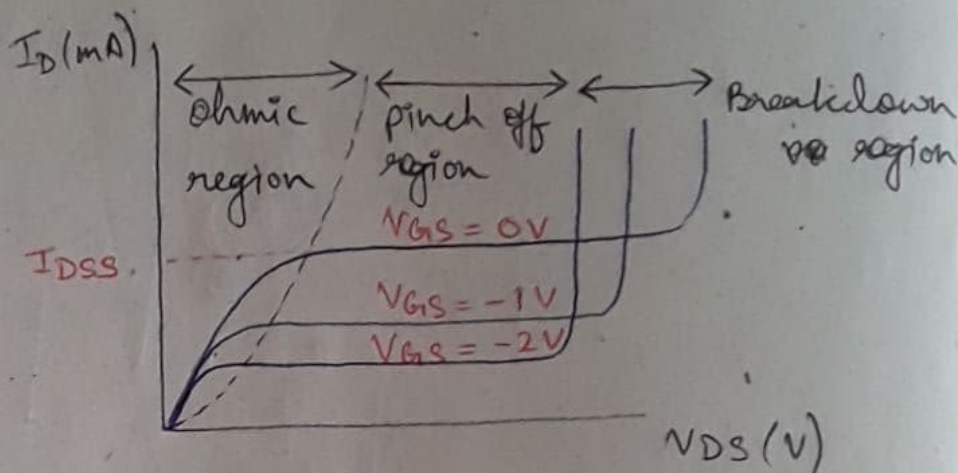 I_D (mA)
ohmic
region
pinch off
region
Breakdown
region
V_GS = 0V
I_DSS
V_GS = -1V
V_GS = -2V
V_DS (V)